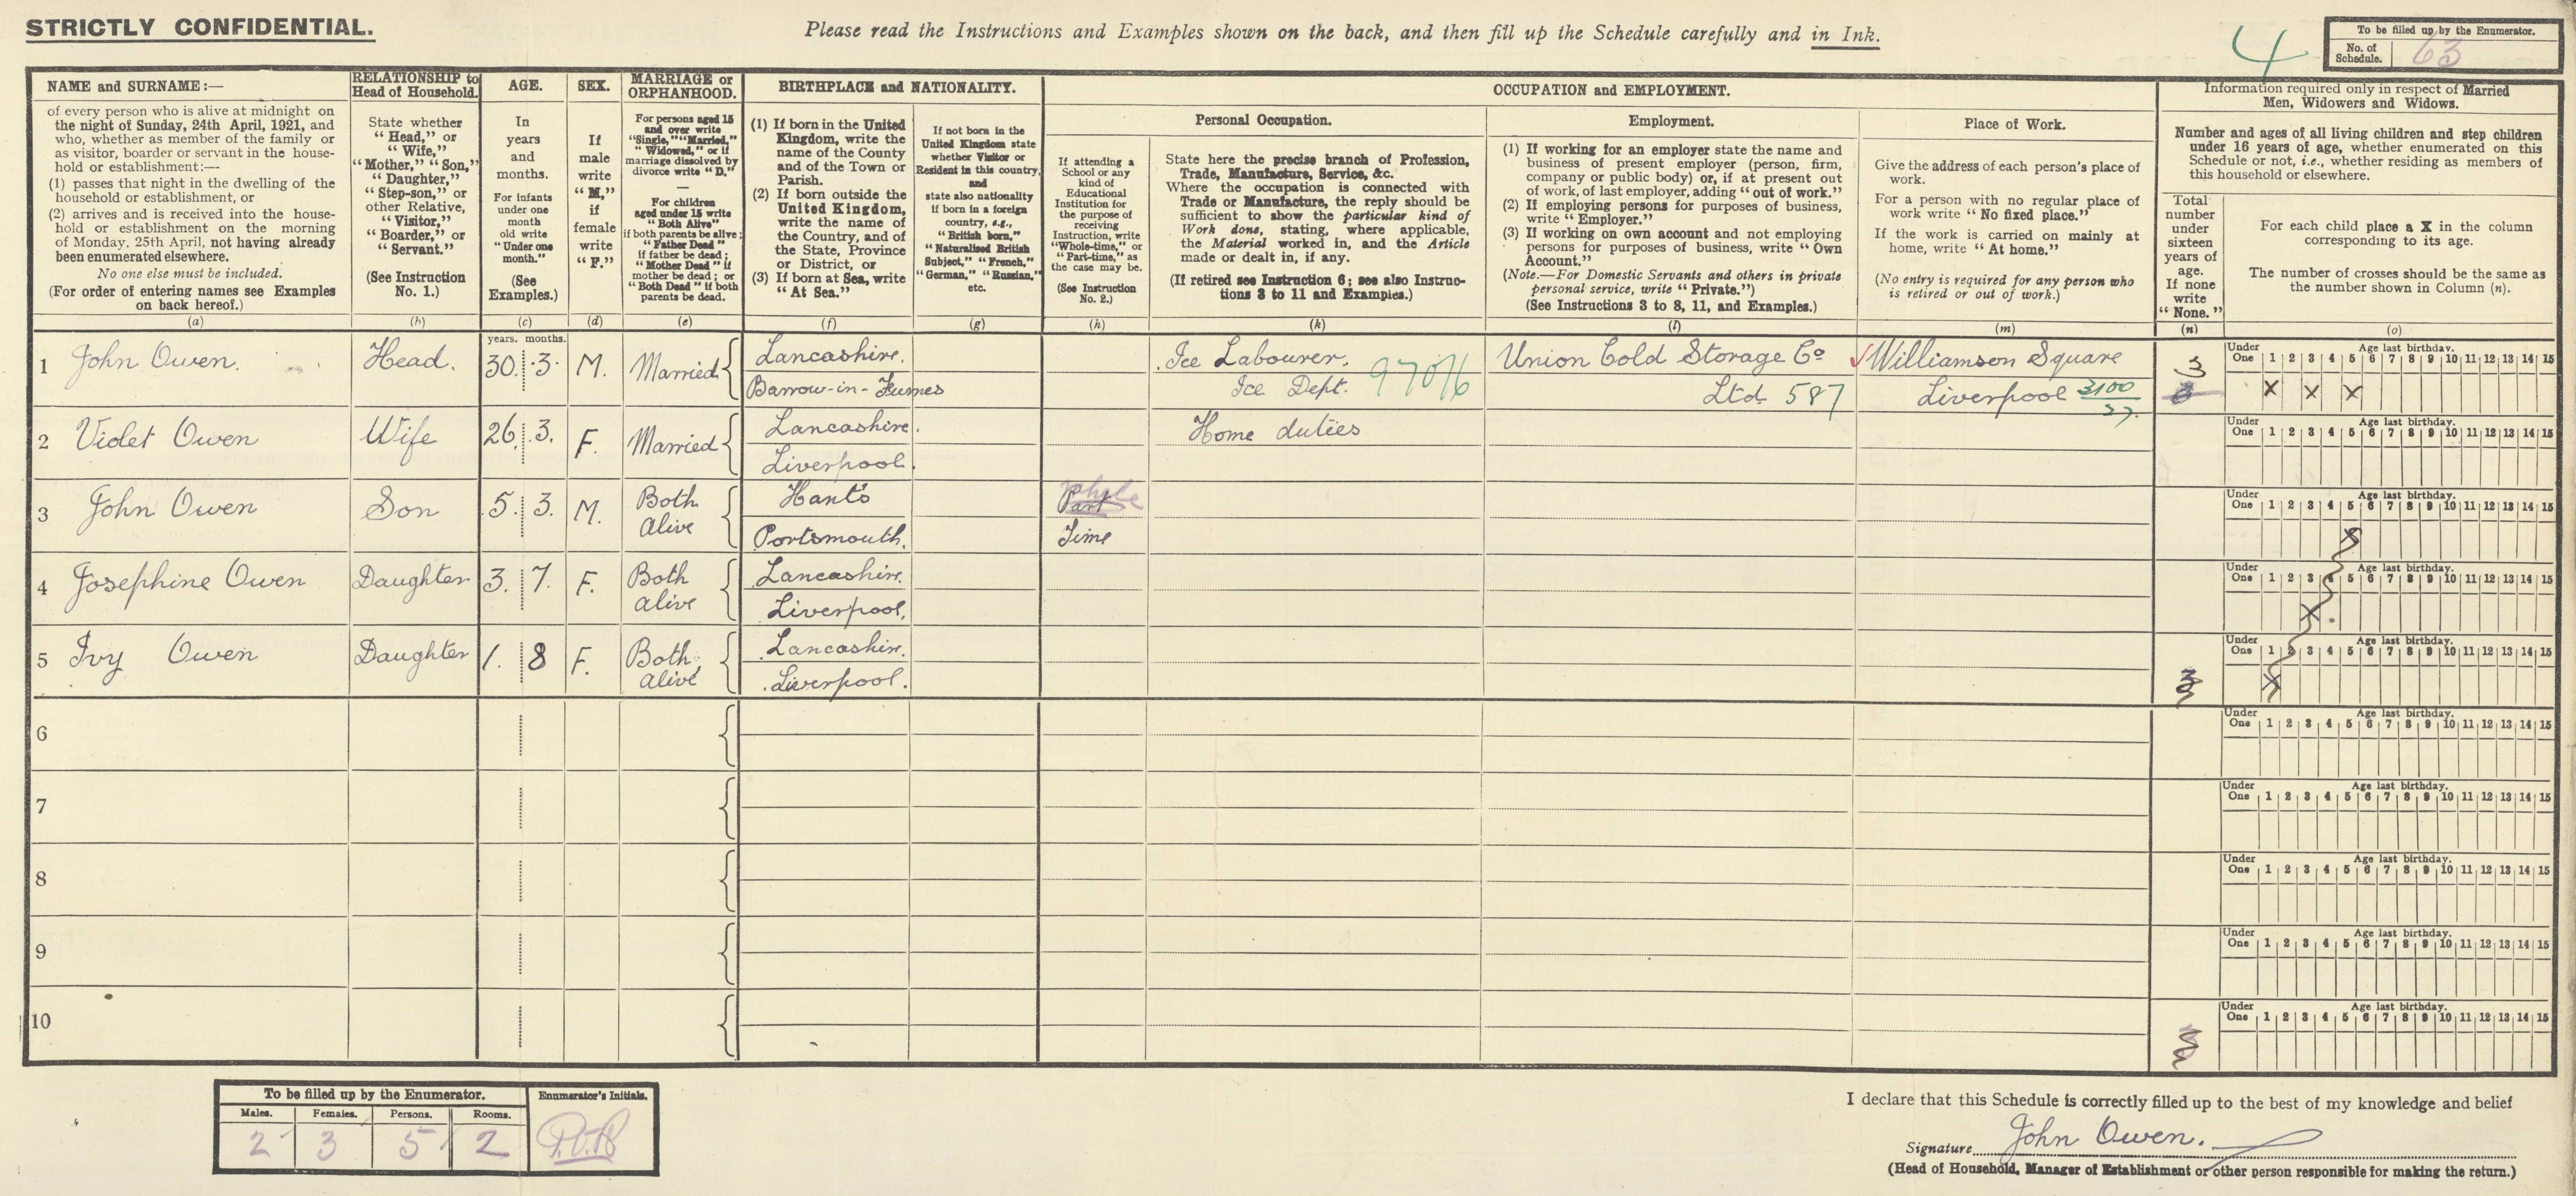 STRICTLY CONFIDENTIAL.
Please read the Instructions and Examples shown on the back, and then fill up the Schedule carefully and in Ink.
4
To be filled up by the Enumerator.
No. of Schedule. 63
NAME and SURNAME:—
of every person who is alive at midnight on
the night of Sunday, 24th April, 1921, and
who, whether as member of the family or
as visitor, boarder or servant in the house-
hold or establishment:—
(1) passes that night in the dwelling of the
household or establishment, or
(2) arrives and is received into the house-
hold or establishment on the morning
of Monday, 25th April, not having already
been enumerated elsewhere.
No one else must be included.
(For order of entering names see Examples
on back hereof.)
(a)
RELATIONSHIP to
Head of Household.
State whether
"Head," or
"Wife,"
"Mother," "Son,"
"Daughter,"
"Step-son," or
other Relative,
"Visitor,"
"Boarder," or
"Servant."
(See Instruction
No. 1.)
(b)
AGE.
In
years
and
months.
For infants
under one
month
old write
"Under one
month."
(See
Examples.)
(c)
SEX.
If
male
write
"M,"
if
female
write
"F."
(d)
MARRIAGE or
ORPHANHOOD.
For persons aged 15
and over write
"Single," "Married,"
"Widowed," or if
marriage dissolved by
divorce write "D."
—
For children
aged under 15 write
"Both Alive"
if both parents be alive;
"Father Dead"
if father be dead;
"Mother Dead" if
mother be dead; or
"Both Dead" if both
parents be dead.
(e)
BIRTHPLACE and NATIONALITY.
(1) If born in the United
Kingdom, write the
name of the County
and of the Town or
Parish.
(2) If born outside the
United Kingdom,
write the name of
the Country, and of
the State, Province
or District, or
(3) If born at Sea, write
"At Sea."
(f)
If not born in the
United Kingdom state
whether Visitor or
Resident in this country,
and
state also nationality
if born in a foreign
country, e.g.,
"British born,"
"Naturalised British
Subject," "French,"
"German," "Russian,"
etc.
(g)
OCCUPATION and EMPLOYMENT.
If attending a
School or any
kind of
Educational
Institution for
the purpose of
receiving
Instruction, write
"Whole-time," or
"Part-time," as
the case may be.
(See Instruction
No. 2.)
(h)
Personal Occupation.
State here the precise branch of Profession,
Trade, Manufacture, Service, &c.
Where the occupation is connected with
Trade or Manufacture, the reply should be
sufficient to show the particular kind of
Work done, stating, where applicable,
the Material worked in, and the Article
made or dealt in, if any.
(If retired see Instruction 6; see also Instruc-
tions 3 to 11 and Examples.)
(k)
Employment.
(1) If working for an employer state the name and
business of present employer (person, firm,
company or public body) or, if at present out
of work, of last employer, adding "out of work."
(2) If employing persons for purposes of business,
write "Employer."
(3) If working on own account and not employing
persons for purposes of business, write "Own
Account."
(Note.—For Domestic Servants and others in private
personal service, write "Private.")
(See Instructions 3 to 8, 11, and Examples.)
(l)
Place of Work.
Give the address of each person's place of
work.
For a person with no regular place of
work write "No fixed place."
If the work is carried on mainly at
home, write "At home."
(No entry is required for any person who
is retired or out of work.)
(m)
Information required only in respect of Married
Men, Widowers and Widows.
Number and ages of all living children and step children
under 16 years of age, whether enumerated on this
Schedule or not, i.e., whether residing as members of
this household or elsewhere.
Total
number
under
sixteen
years of
age.
If none
write
"None."
(n)
For each child place a X in the column
corresponding to its age.
The number of crosses should be the same as
the number shown in Column (n).
(o)
years. months.
1 John Owen. Head. 30. 3. M. Married Lancashire. Ice Labourer. Union Cold Storage Co Williamson Square 3
Barrow-in-Furnes Ice Dept. 97076 Ltd 587 Liverpool 3100
Under One 1 2 3 4 5 6 7 8 9 10 11 12 13 14 15 Age last birthday.
X X X
2 Violet Owen Wife 26. 3. F. Married Lancashire. Home duties
Liverpool.
Under One 1 2 3 4 5 6 7 8 9 10 11 12 13 14 15 Age last birthday.
3 John Owen Son 5. 3. M. Both Alive Hants Part
Portsmouth. Time
Under One 1 2 3 4 5 6 7 8 9 10 11 12 13 14 15 Age last birthday.
X
4 Josephine Owen Daughter 3. 7. F. Both Alive Lancashire.
Liverpool.
Under One 1 2 3 4 5 6 7 8 9 10 11 12 13 14 15 Age last birthday.
X
5 Ivy Owen Daughter 1. 8 F. Both Alive Lancashire.
Liverpool.
Under One 1 2 3 4 5 6 7 8 9 10 11 12 13 14 15 Age last birthday.
X
6
Under One 1 2 3 4 5 6 7 8 9 10 11 12 13 14 15 Age last birthday.
7
Under One 1 2 3 4 5 6 7 8 9 10 11 12 13 14 15 Age last birthday.
8
Under One 1 2 3 4 5 6 7 8 9 10 11 12 13 14 15 Age last birthday.
9
Under One 1 2 3 4 5 6 7 8 9 10 11 12 13 14 15 Age last birthday.
10
Under One 1 2 3 4 5 6 7 8 9 10 11 12 13 14 15 Age last birthday.
To be filled up by the Enumerator.
Males. Females. Persons. Rooms.
2 3 5 2
Enumerator's Initials.
I declare that this Schedule is correctly filled up to the best of my knowledge and belief
Signature John Owen.
(Head of Household, Manager of Establishment or other person responsible for making the return.)